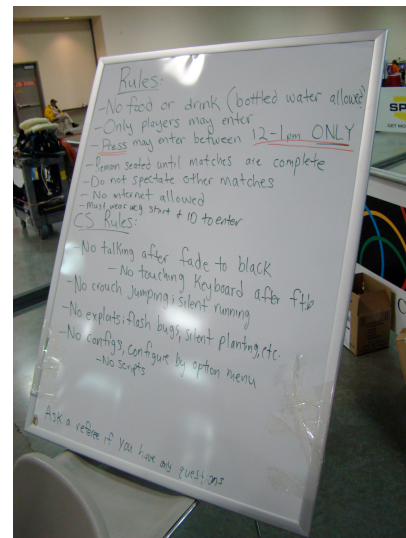 Rules:
-No food or drink (bottled water allowed)
-Only players may enter
-Press may enter between 12-1pm ONLY
-Remain seated until matches are complete
-Do not spectate other matches
-No internet allowed
-Must wear wcg shirt + ID to enter
CS Rules:
-No talking after fade to black
-No touching keyboard after ftb
-No crouch jumping; silent running
-No exploits; flash bugs, silent planting, etc.
-No configs, configure by option menu
-No scripts
Ask a referee if you have any questions
SP